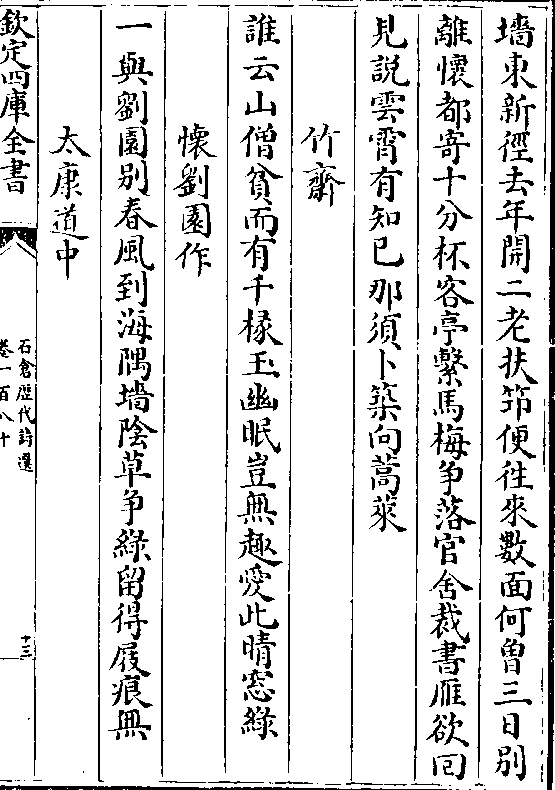 墻東新徑去年開二老扶筇便往來數面何曾三日别
離懷都寄十分杯客亭繫馬梅争落官舍裁書雁欲回
見説雲霄有知已那須卜築向蒿萊
竹齋
誰云山僧貧而有千椽玉幽眠豈無趣愛此晴窓綠
懷劉園作
一與劉園别春風到海隅墻陰草争綠留得屐痕無
太康道中
欽定四庫全書
石倉歷代詩選
卷一百八十
十三